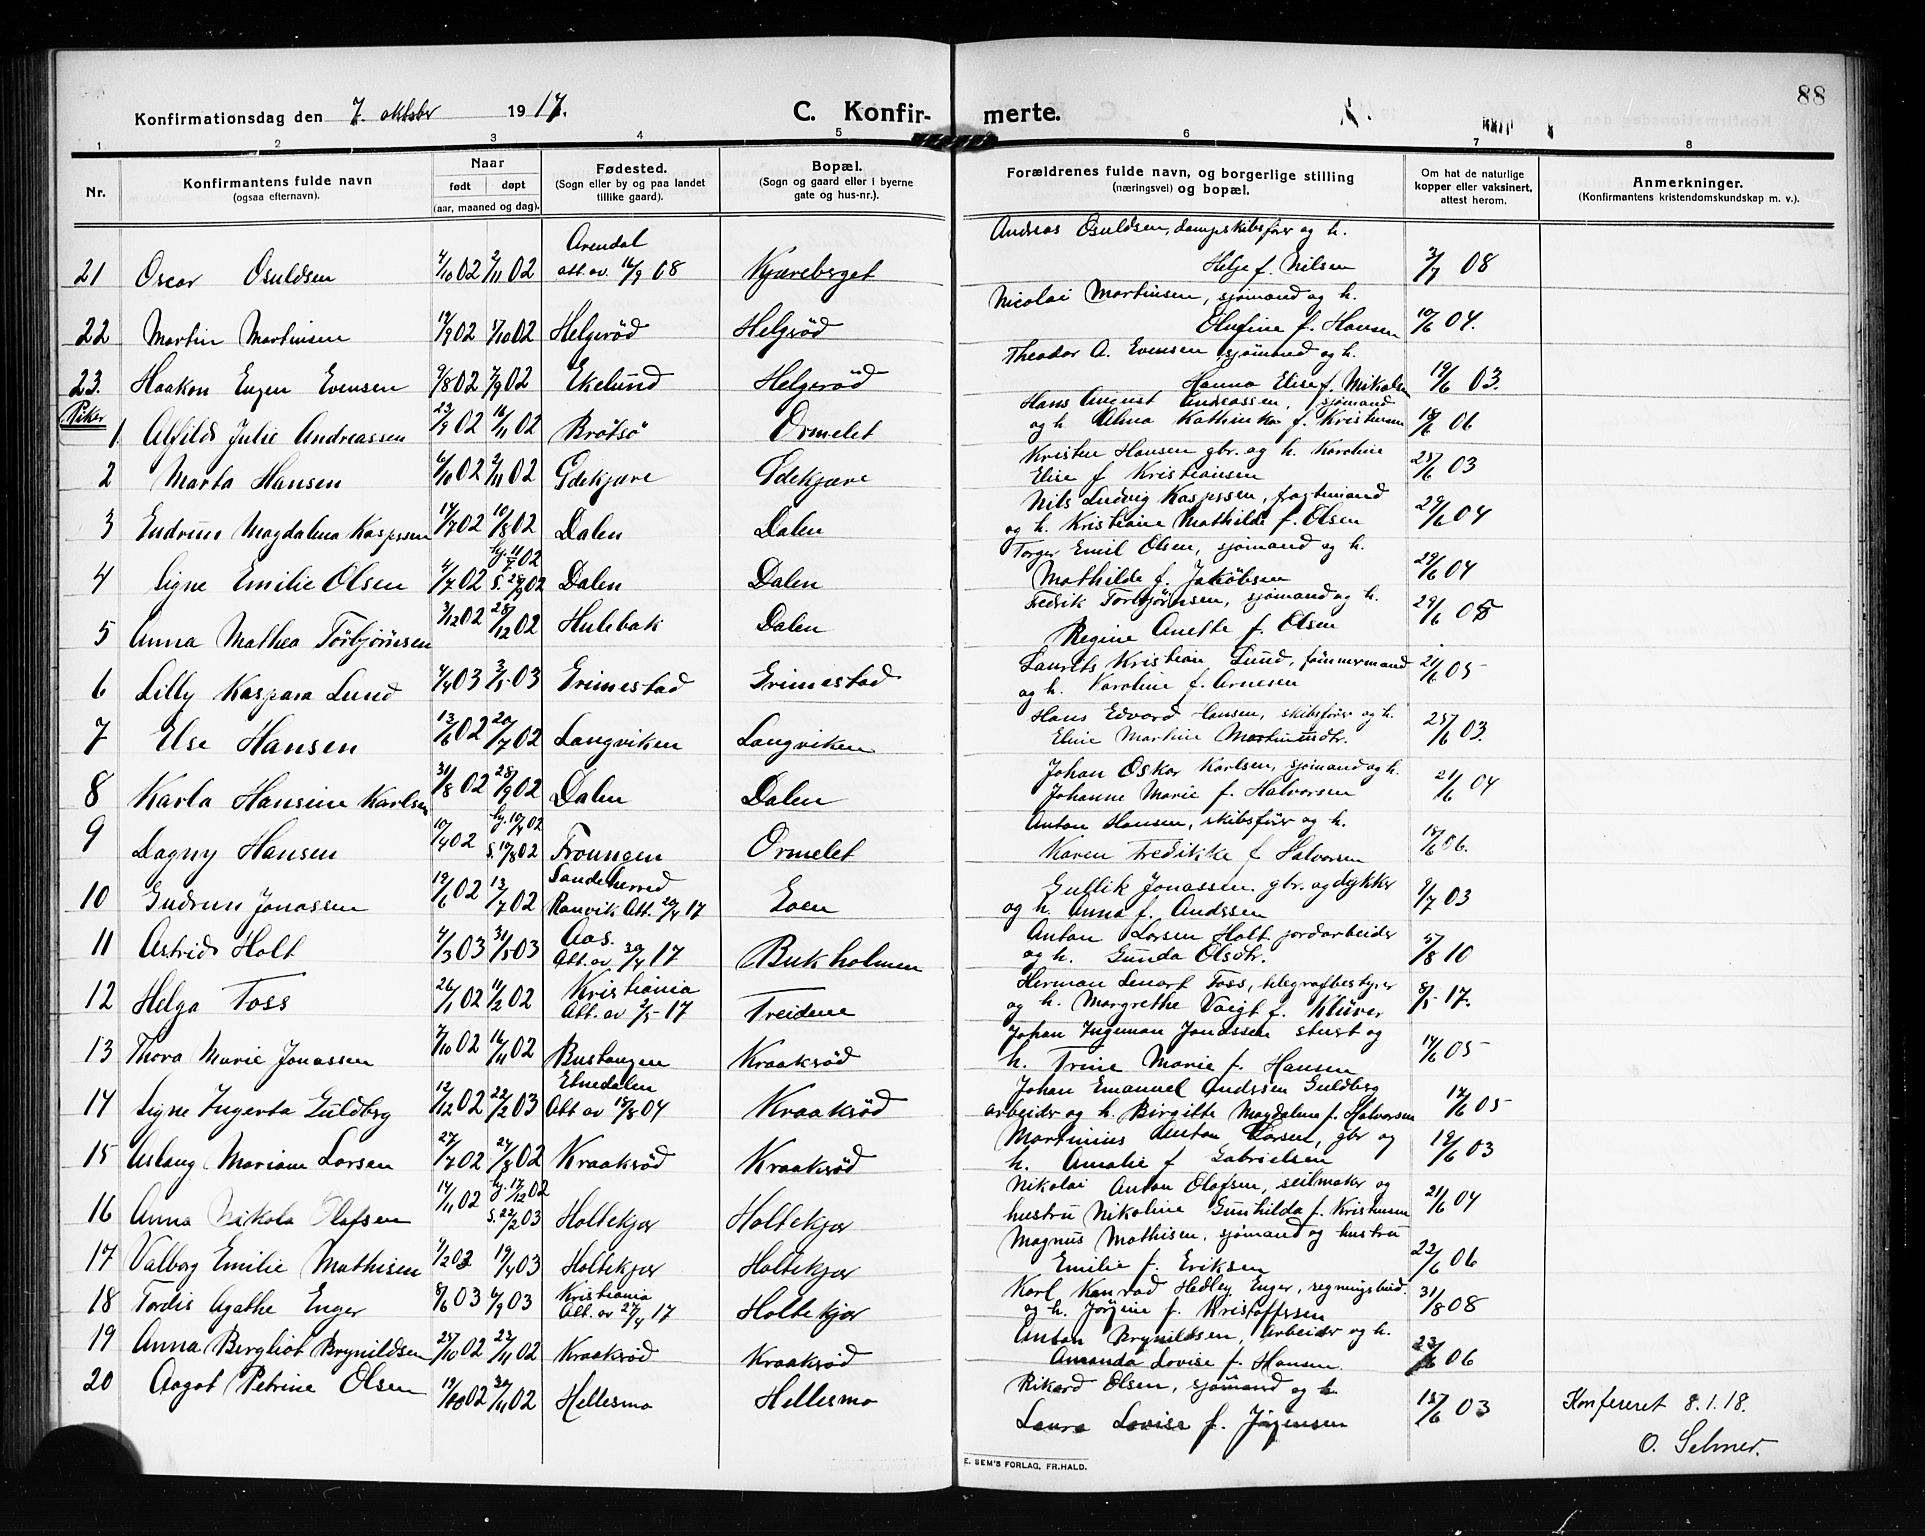 88
Konfirmationsdag den 7. oktober 1917.
C. Konfirmerte.
1 2 3 4 5 6 7 8
Nr.
Konfirmantens fulde navn
(ogsaa efternavn).
Naar
født døpt
(aar, maaned og dag).
Fødested.
(Sogn eller by og paa landet
tillike gaard).
Bopæl.
(Sogn og gaard eller i byerne
gate og hus-nr.).
Forældrenes fulde navn, og borgerlige stilling
(næringsvei) og bopæl.
Om hat de naturlige
kopper eller vaksinert,
attest herom.
Anmerkninger.
(Konfirmantens kristendomskundskap m. v.).
21 Oscar Osuldsen 4/10 02 2/11 02 Arendal att. av 16/9 08 Kjæreberget Andreas Osuldsen, dampskibsfører og h. Helje f. Nilsen 3/7 08
22 Martin Martinsen 19/9 02 Helgerød Helgerød Nicolai Martinsen, sjømand og h. Olufine f. Hansen 10/6 04.
23. Haakon Eugen Evensen 9/8 02 7/9 02 Ekelund Helgerød Theodor A. Evensen, sjømand og h. Hanna Elise f. Nikolsen 19/6 03.
Piker
1 Alfild Julie Andreassen 23/9 02 16/11 02 Brøtsø Ormelet Hans August Andreassen, sjømand og h. Alma Kathinka f. Kristensen 18/6 06
2 Marta Hansen 6/10 02 2/11 02 Gdekjære Gdekjære Kristen Hansen gbr. og h. Karoline Elise f Kristiansen 25/6 03
3 Gudrun Magdalena Kasperssen 17/7 02 10/8 02 Dalen Dalen Nils Ludvig Kasperssen, fagtmand og h. Kristiane Mathilde f. Olsen 29/6 04
4 Signe Emilie Olsen 4/7 02 hj. 11/7 02 S. 28/9 02 Dalen Dalen Torger Emil Olsen, sjømand og h. Mathilde f. Jakobsen 29/6 04
5 Anna Mathea Torbjørnsen 3/12 02 28/12 02 Hulebak Dalen Fredrik Torbjørnsen, sjømand og h. Regine Anette f. Olsen 29/6 05
6 Lilly Kaspara Lund 4/4 03 3/5 03 Grimestad Grimestad Laurits Kristian Lund, tømmermand og h. Karoline f. Arnesen 21/6 05
7 Else Hansen 13/6 02 20/7 02 Langviken Langviken Hans Edvard Hansen, skibsfører og h. Eline Martine Martinusdtr. 25/6 03.
8 Karla Hansine Karlsen 31/8 02 28/9 02 Dalen Dalen Johan Oskar Karlsen, sjømand og h. Johanne Marie f. Halvorsen 21/6 04
9 Dagny Hansen 10/4 02 hj. 10/4 02 S. 10/8 02 Troungen Ormelet Anton Hansen, skibsfører og h. Karen Fredikke f Halvorsen 18/6 06.
10 Gudrun Jonassen 19/6 02 13/7 02 Sandeherred Ranvik Att. 20/4 17 Eoen Gullik Jonassen gbr. og dykker og h. Anna f. Andssen 9/7 03
11 Astrid Holt 4/3 03 31/5 03 Aas. Att. av 30/4 17 Bukholmen Anton Larsen Holt jordarbeider og h. Gunda Olsdtr. 5/8 10
12 Helga Foss 26/1 02 11/2 02 Kristiania Att. av 2/5 17 Treidene Herman Lenart Foss, telegrafbestyrer og h. Margrethe Vaigt f. Klüver 8/5 17.
13 Thora Marie Jonassen 7/10 02 16/11 02 Bustangen Kraakerød Johan Ingeman Jonassen stuert og h. Trine Marie f. Hansen 14/6 05
14 Signe Ingerta Guldberg 12/12 02 22/2 03 Etnedalen Att av 18/8 04 Kraakerød Johan Emanuel Anderssen Guldberg arbeider og h. Birgitte Magdalene f. Halvorsen 17/6 05
15 Aslaug Mariane Larsen 27/7 02 24/8 02 Kraakerød Kraakerød Martinius Anton Larsen, gbr og h. Amalie f Gabrielsen 19/6 03
16 Anna Nikola Olafsen 14/11 02 hj. 17/12 02 S. 22/2 03 Holtekjær Holtekjær Nikolai Anton Olafsen, seilmaker og hustru Nikoline Gunhilda f. Kristensen 21/6 04
17 Valborg Emilie Mathisen 19/4 03 Holtekjær Holtekjær Magnus Mathisen, sjømand og hustru Emilie f. Eriksen 22/6 06
18 Tordis Agathe Enger 8/6 03 6/9 03 Kristiania Att. av 27/4 17 Holtekjær Karl Konrad Hedley Enger, regningsbud. og h. Jørgine f. Kristofferssen 31/8 08
19 Anna Bergliot Brynildsen 25/10 02 22/11 02 Kraakerød Kraakerød Anton Brynildsen, arbeider og h. Amanda Lovise f. Hansen. 23/6 06
20 Aagot Petrine Olsen 19/10 02 30/11 02 Hellesmo Hellesmo Rikard Olsen, sjømand og h. Laura Lovise f. Jørgensen 15/6 03
Konfereret 8.1.18.
O. Selmer.
E. SEM'S FORLAG, FR.HALD.